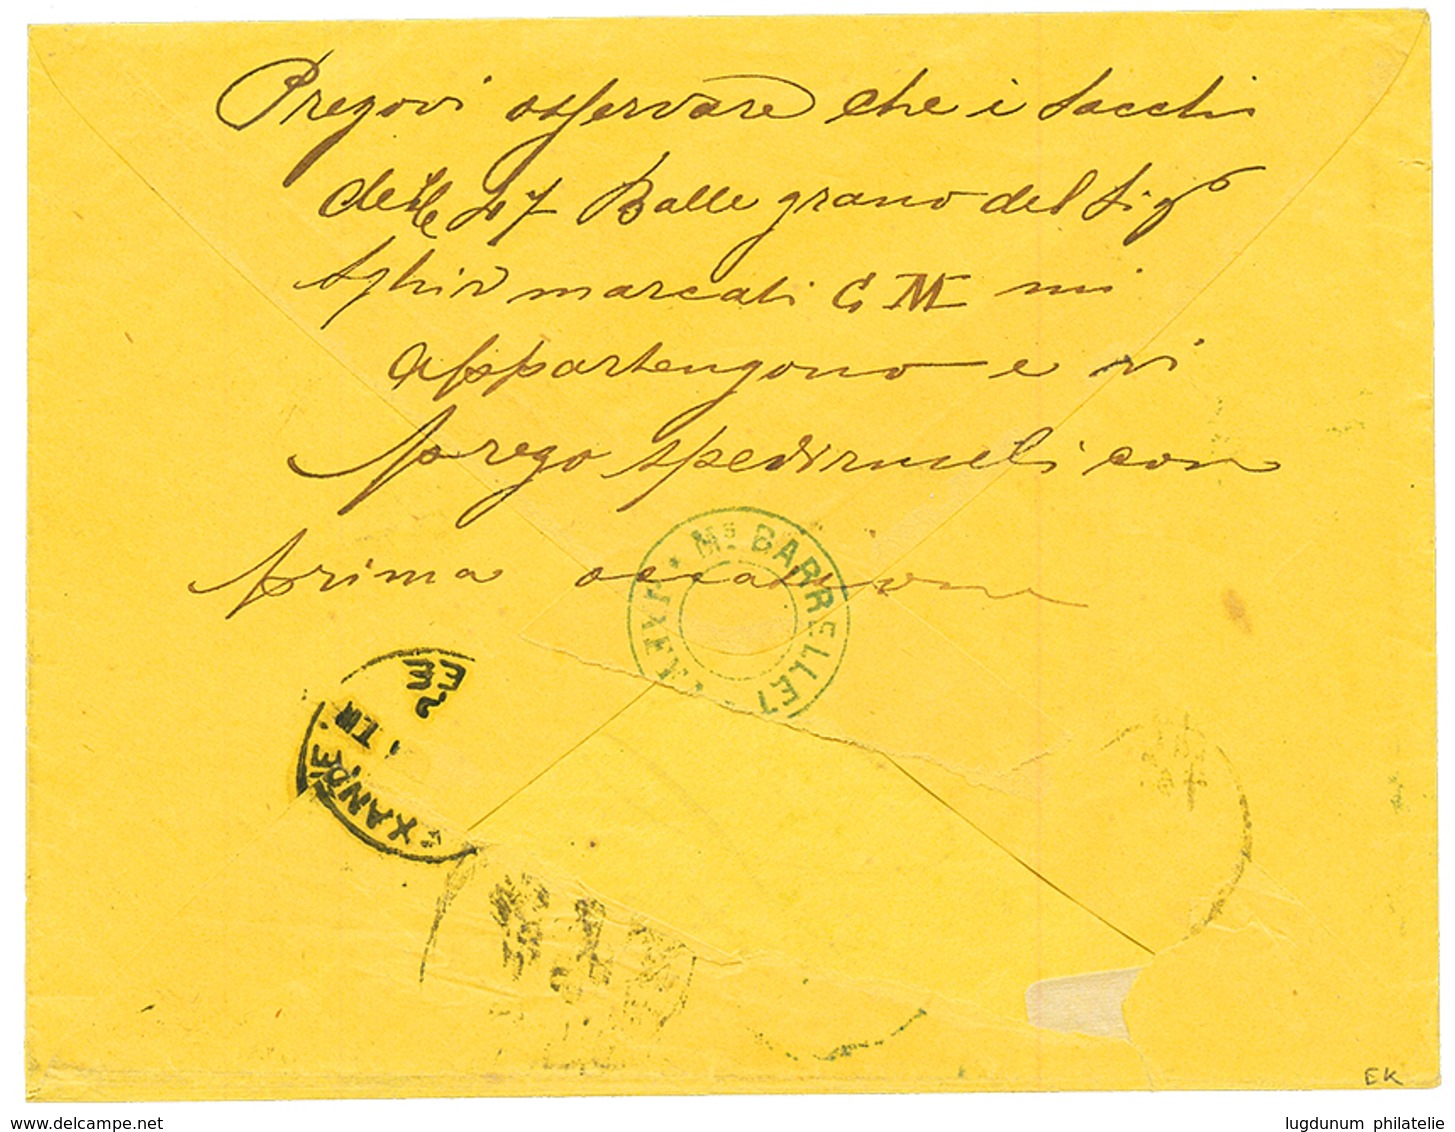 Pregovi osservare che i sacchi
delle 47 Balle grano del Sigr
marcati G M mi
appartengono e vi
prego spedirmeli con
prima occasione
Ms BARRELLET
EXANDRIE
EK
lugdunum philatelie